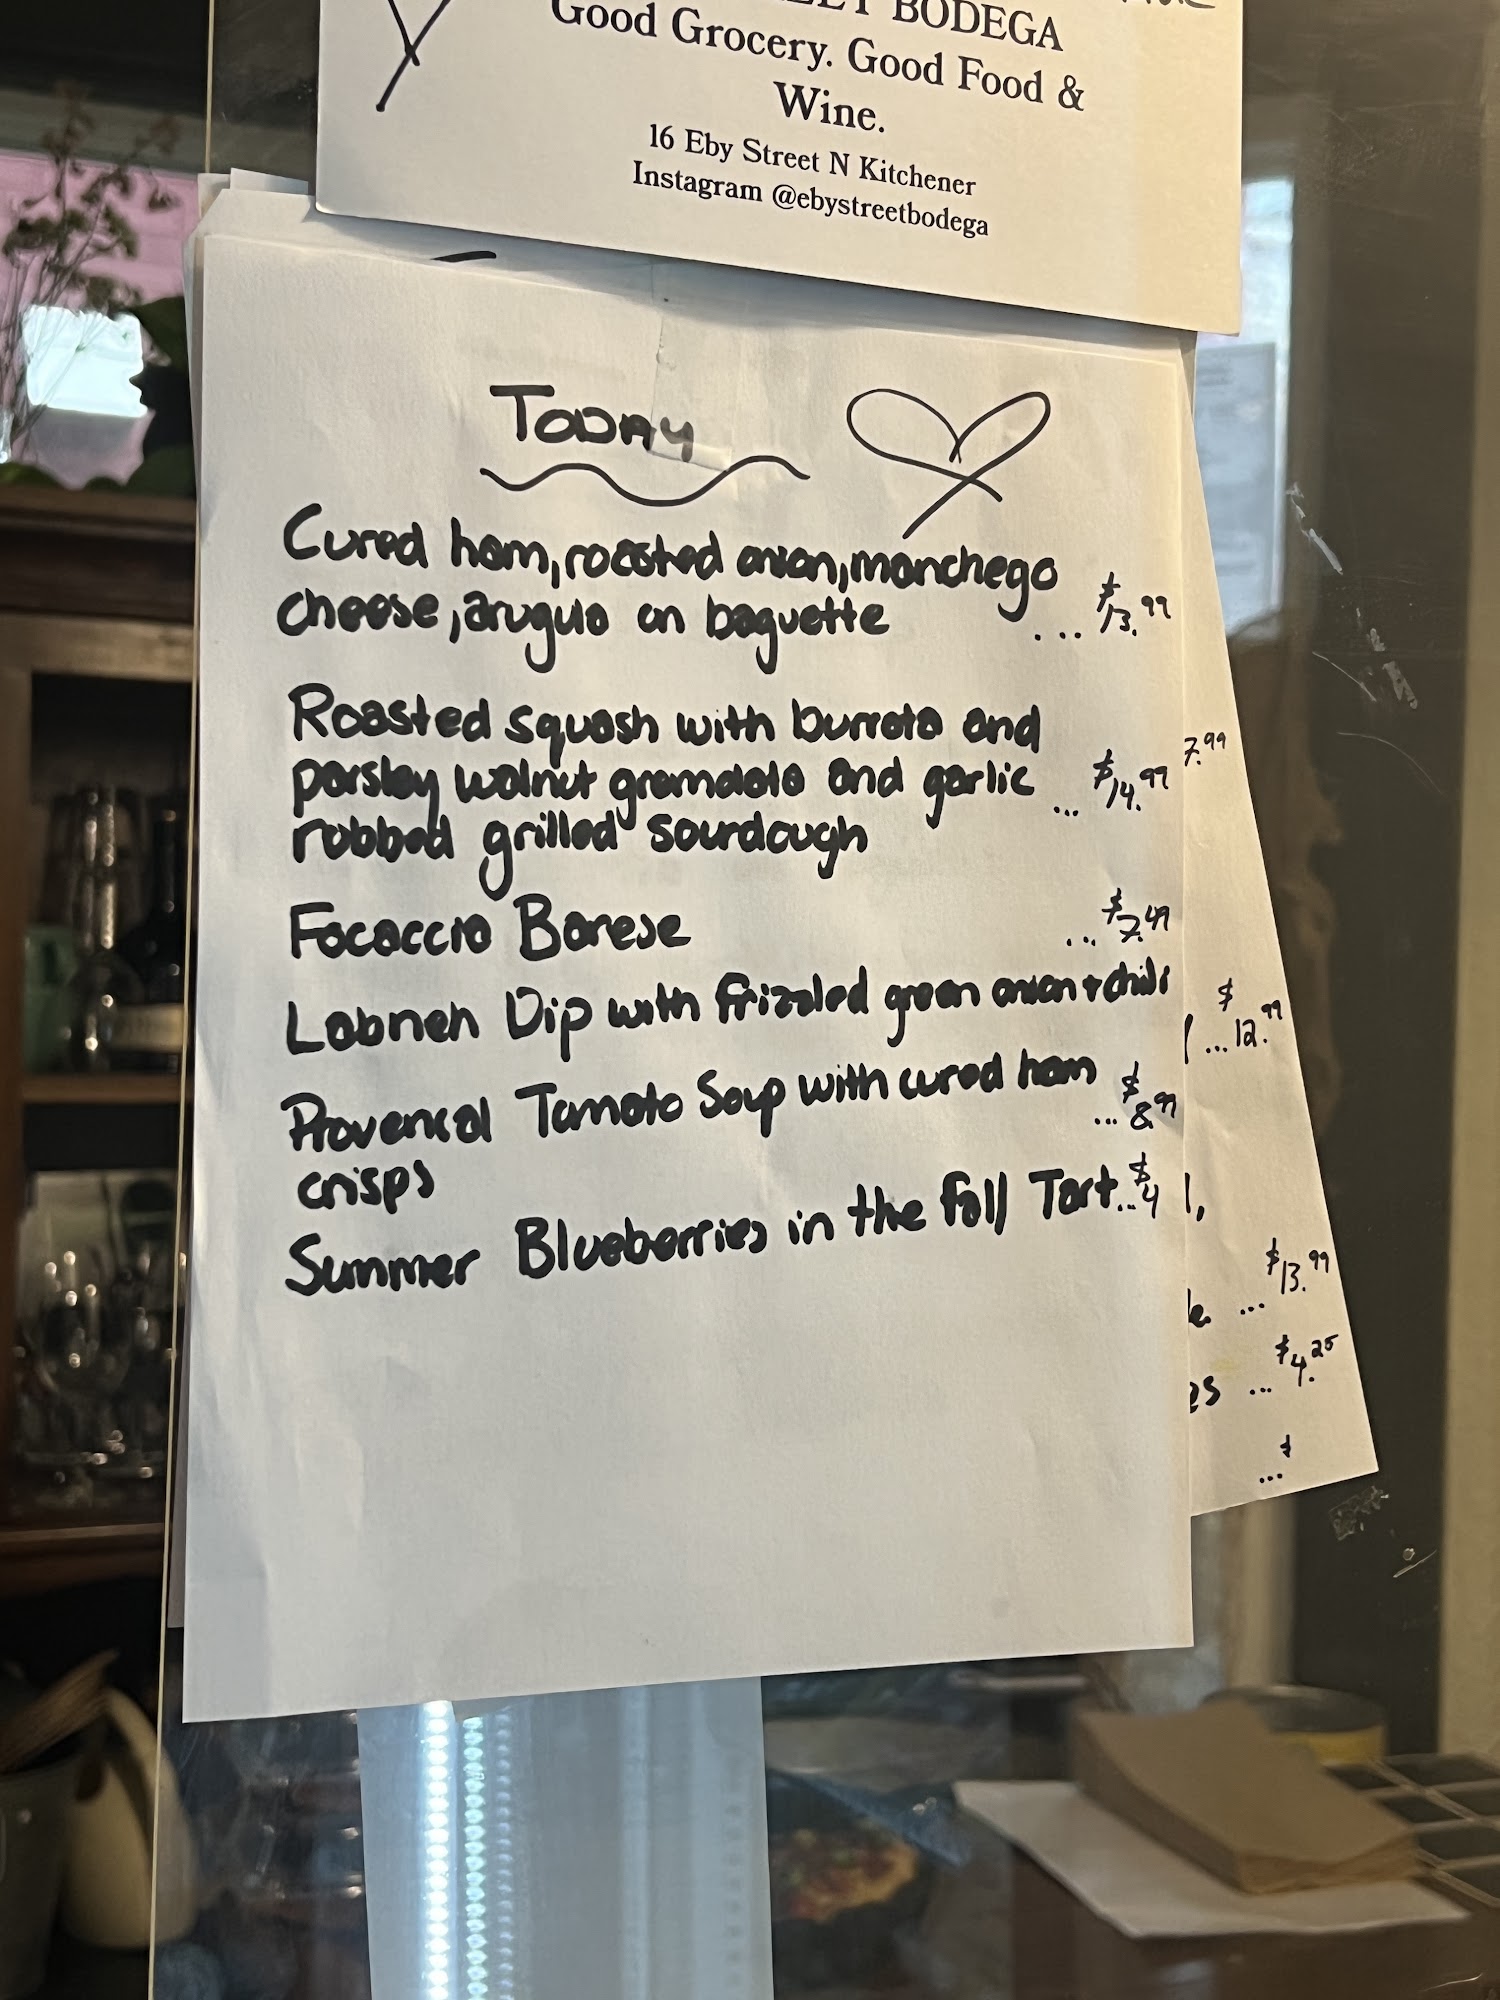 BODEGA
Good Grocery. Good Food &
Wine.
16 Eby Street N Kitchener
Instagram @ebystreetbodega
Today
Cured ham, roasted onion, manchego
cheese, arugula on baguette ... $13.99
Roasted squash with burrata and
parsley walnut gremolata and garlic ... $14.99
rubbed grilled sourdough
Focaccia Barese ... $7.49
Labneh Dip with frizzled green onion + chili
Provencal Tomato Soup with cured ham ... $8.99
crisps
Summer Blueberries in the fall Tart... $4
7.99
... $12.99
... $13.99
... $4.25
... $